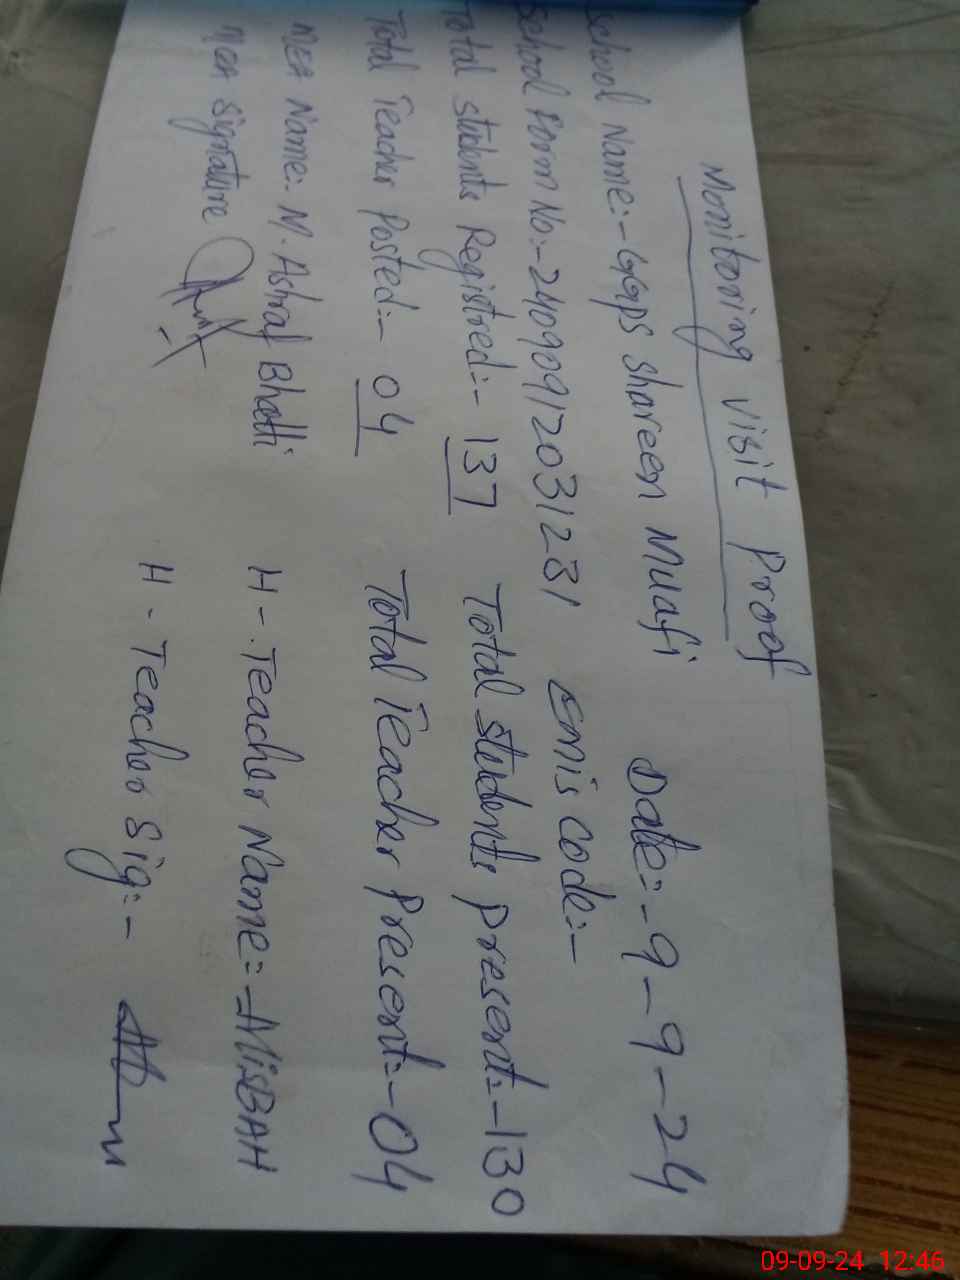 Monitoring visit Proof
School Name:- GGPS Shareen Muafi Date:- 9-9-24
School Form No:- 24090912031231 Emis code:-
Total students Registred:- 137 Total students present:- 130
Total Teacher Posted:- 04 Total Teacher Present:- 04
MEA Name:- M. Ashraf Bhatti H-Teacher Name:- MISBAH
MEA Signature H-Teacher Sig:-
09-09-24 12:46